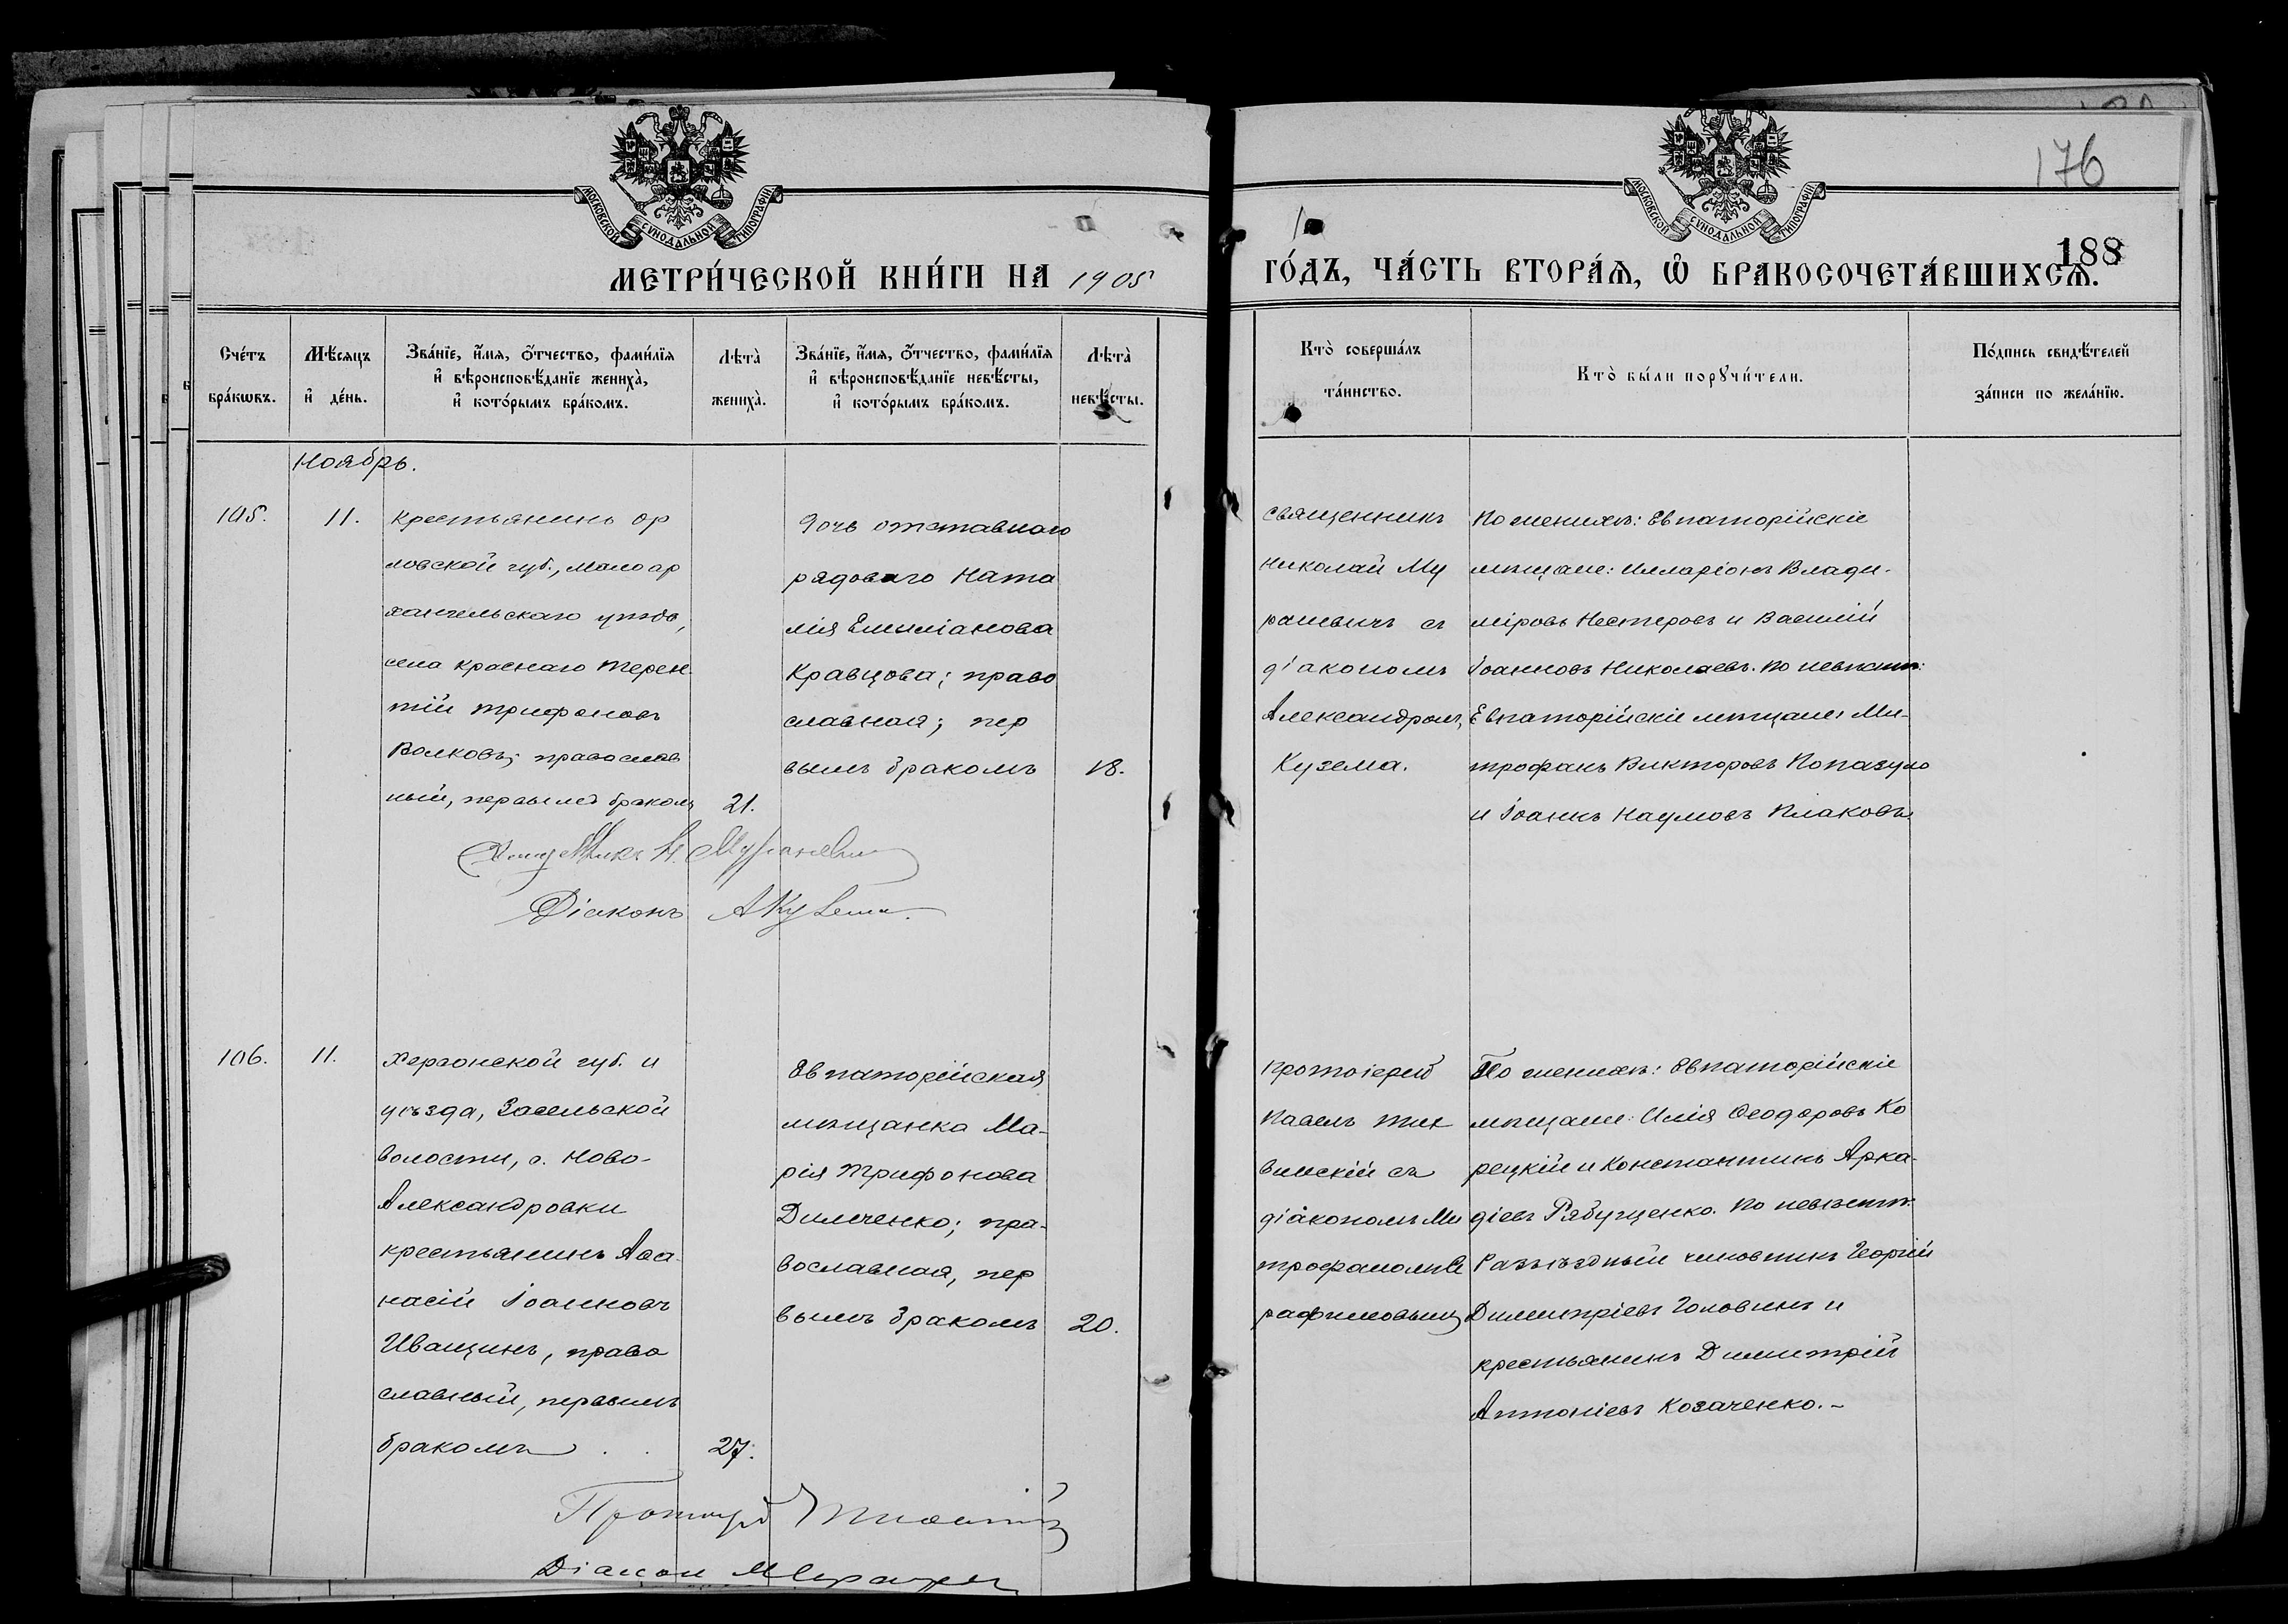 176
188
МОСКОВСКОЙ СѴНОДАЛЬНОЙ ТИПОГРАФІИ
МОСКОВСКОЙ СѴНОДАЛЬНОЙ ТИПОГРАФІИ
МЕТРИ́ЧЕСКОЙ КНИ́ГИ НА 1905
ГО́ДЪ, ЧА́СТЬ ВТОРА́Ѧ, Ѡ҆ БРАКОСОЧЕТА́ВШИХСѦ.
Сче́тъ
бра́кѡвъ.
Мѣ́сяцъ
и҆ де́нь.
Зва́нїе, и҆́мя, ѻ҆́тчество, фами́лїя
и҆ вѣроисповѣ́данїе жениха̀,
и҆ кото́рымъ бра́комъ.
Лѣта̀
жениха̀.
Зва́нїе, и҆́мя, ѻ҆́тчество, фами́лїя
и҆ вѣроисповѣ́данїе невѣ́сты,
и҆ кото́рымъ бра́комъ.
Лѣта̀
невѣ́сты.
Кто̀ соверша́лъ
та́инство.
Кто̀ бы́ли порꙋчи́тели.
По́дпись свидѣ́телей
за́писи по жела́нїю.
Ноябрь.
105.
11.
крестьянинъ ор
ловской губ., Малоар
хангельскаго уѣзда,
села Краснаго Терен
тій Трифоновъ
Волковъ; православ
ный, первымъ бракомъ
21.
Дочь отставного
рядоваго Ната
лія Емиліанова
Кравцова; право
славная; пер
вымъ бракомъ
18.
Священникъ
Николай Му
раневичъ съ
діакономъ
Александромъ
Кузема.
По женихѣ: Евпаторійскіе
мѣщане: Илларіонъ Влади-
міровъ Нестеровъ и Василій
Іоанновъ Николаевъ. По невѣстѣ:
Евпаторійскіе мѣщане: Ми-
трофанъ Викторовъ Попазуло
и Іоаннъ Наумовъ Плаковъ
Священникъ Н. Мураневич
Діаконъ А Кузема.
106.
11.
Херсонской губ. и
уѣзда, Засельской
волости, с. Ново-
Александровки
крестьянинъ Аѳа
насій Іоанновъ
Иващинъ, право
славный, первымъ
бракомъ
27.
Евпаторійская
мѣщанка Ма-
рія Трифонова
Димченко; пра-
вославная, пер
вымъ бракомъ
20.
Протоіерей
Павелъ Тих
винскій съ
діакономъ Ми
трофаномъ Се
рафимовымъ
По женихѣ: Евпаторійскіе
мѣщане: Илія Ѳеодоровъ Ко
рецкій и Константинъ Арка-
діевъ Рябущенко. По невѣстѣ:
Разъѣздный чиновникъ Георгій
Димитріевъ Головинъ и
крестьянинъ Димитрій
Антоніевъ Козаченко.-
Протоіерей
Діакон